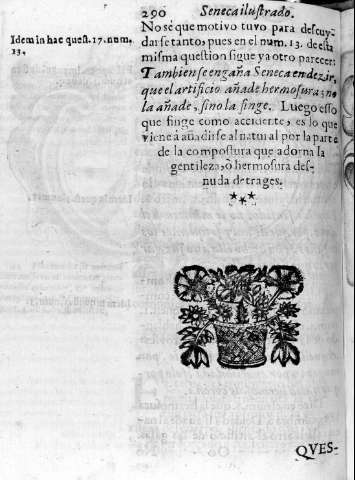 290 Seneca ilustrado.
No sè que motivo tuvo para descuy-
Idem in hac quest. 17. num.
13.
darse tanto, pues en el num. 13. de esta
misma question sigue ya otro parecer:
Tambien se engaña Seneca en dezir,
que el artificio añade hermosura; no
la añade, sino la finge. Luego esso
que finge como accidente, es lo que
viene à añadirse al natural por la parte
de la compostura que adorna la
gentileza, ò hermosura des-
nuda de trages.
***
QVES-